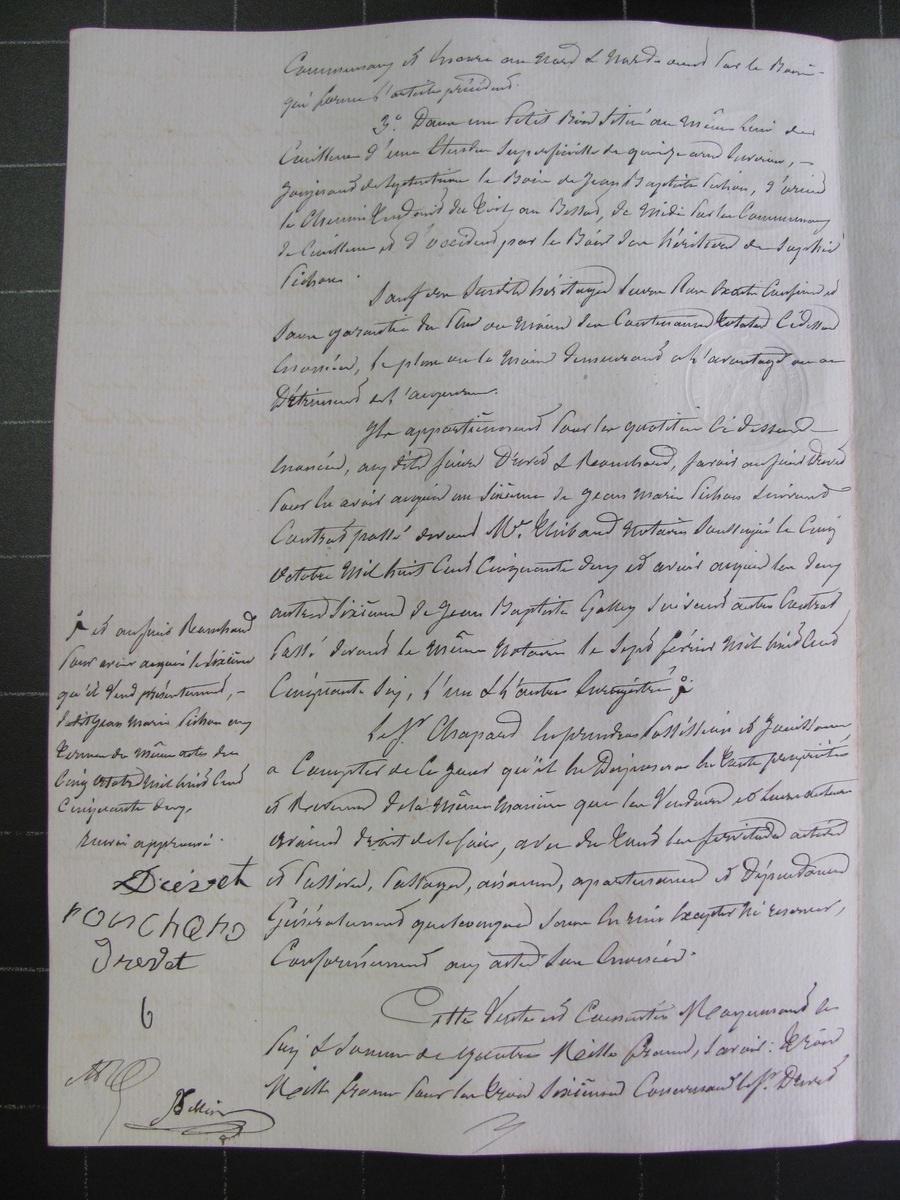 Communaux et encore au nord & nord-ouest par le Bois
qui forme l'article précédent.
3°. Dans un petit Bois situé au même lieu de
d'une étendue superficielle de quinze ares environ,
joignant de septentrion le Bois de Jean Baptiste Pichon, d'orient
le Chemin tendant du au Bessat, de midi par les Communaux
de et d'occident par le Bois des héritiers de
Pichon.
Sauf des susdits héritages leurs plus exacts confins et
sans garantie du plus ou moins des contenances totales ci-dessus
énoncées, le plus ou le moins demeurant à l'avantage ou au
détriment de l'acquéreur.
Ils appartiennent pour les quotités ci-dessus
énoncées, auxdits sieurs Drevet & Rouchand, savoir au sieur Drevet
pour les avoir acquis un sixième de Jean Marie Pichon suivant
Contrat passé devant Me. Thibaud notaire soussigné le Cinq
octobre mil huit Cent Cinquante deux et avoir acquis les deux
autres sixièmes de Jean Baptiste suivant autre Contrat
passé devant le même notaire le sept février mil huit Cent
Cinquante six, l'un & l'autre enregistrés
Le Sr. Chapard en prendra possession et jouissance
à Compter de ce jour qu'il en disposera en toute propriété
et revenus de la même manière que les vendeurs et leurs auteurs
avaient droit de le faire, avec de tous les servitudes actives
et passives, passages, aisances, appartenances et dépendances
généralement quelconques sans en rien excepter ni réserver,
Conformément aux actes sus énoncés.
Cette Vente est Consentie Moyennant le
prix & somme de quatre Mille francs, savoir: trois
Mille francs pour les trois sixièmes Concernant le Sr. Drevet
et au sieur Rouchand
pour avoir acquis le sixième
qu'il vend présentement,
dudit Jean Marie Pichon aux
termes du même acte du
Cinq octobre mil huit Cent
Cinquante deux.
Renvoi approuvé.
Drevet
rouchand
Drevet
6